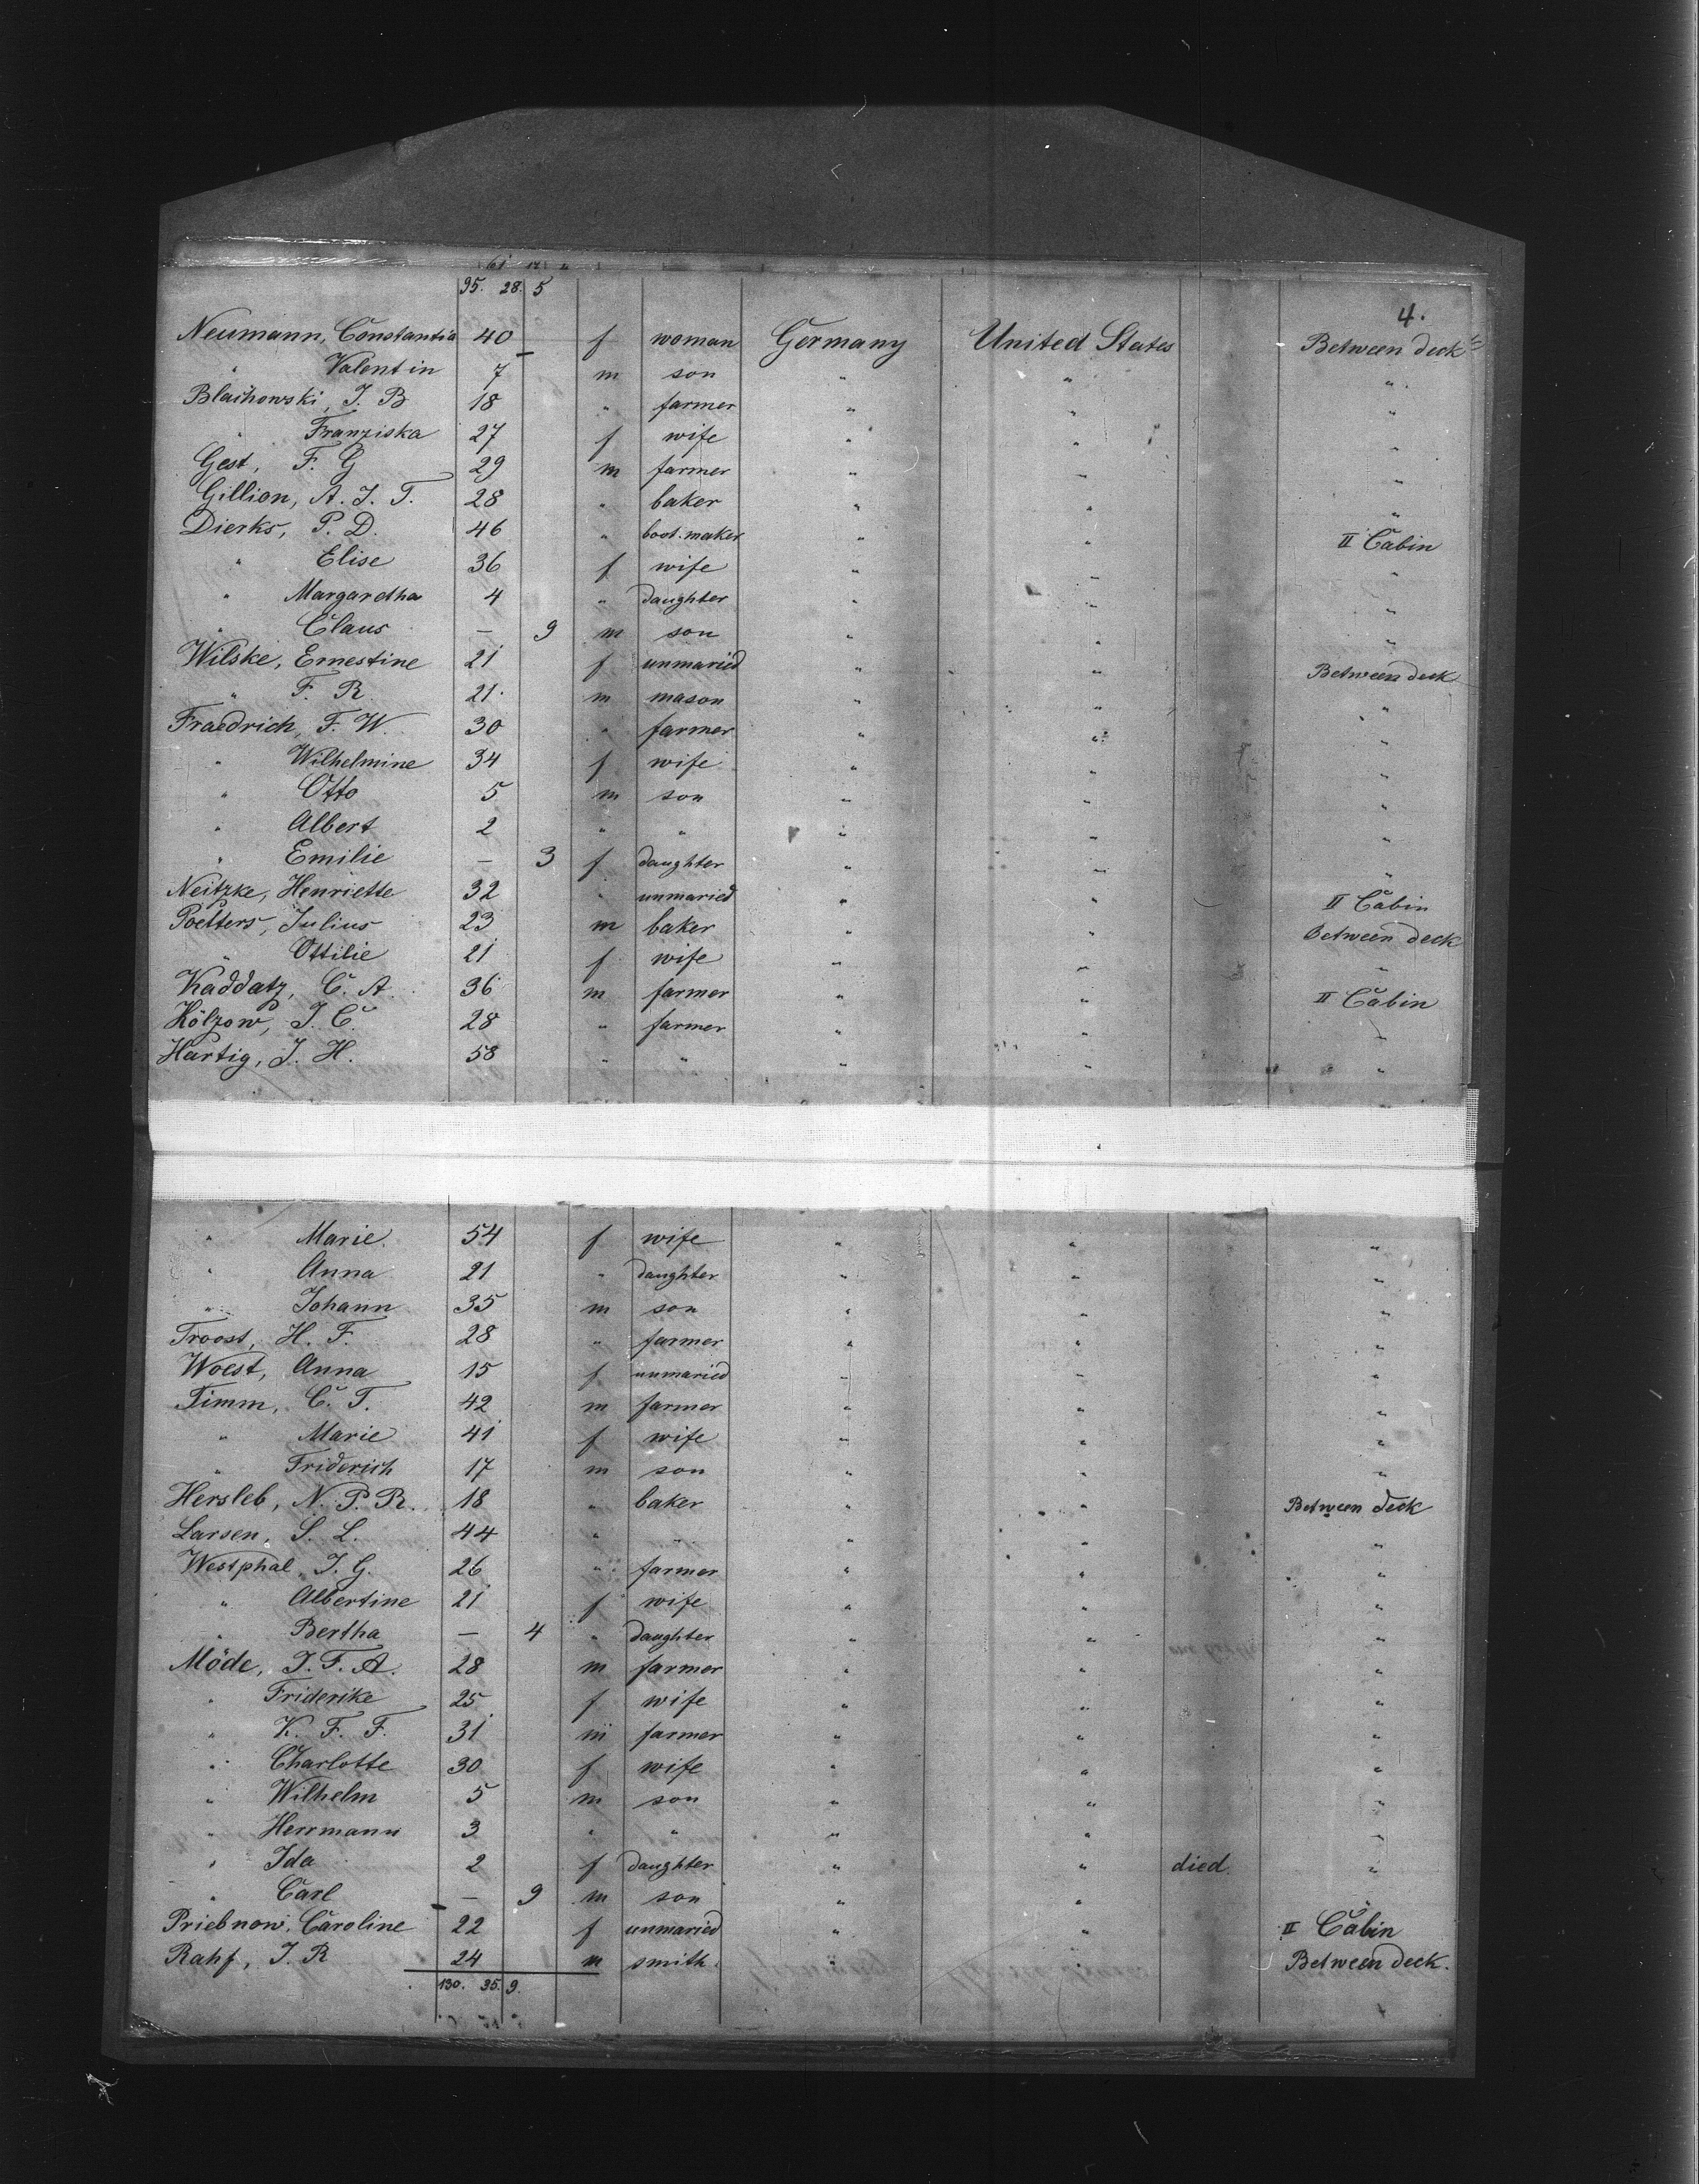 95. 28. 5
4.
Neumann, Constantia 40 f woman Germany United States Between deck
" Valentin 7 m son " " "
Blaihowski, J. B 18 " farmer " " "
" Franziska 27 f wife " " "
Gest, F. G 29 m farmer " " "
Gillion, A. J. T. 28 " baker " " "
Dierks, P. D. 46 " boot-maker " " II Cabin
" Elise 36 f wife " " "
" Margaretha 4 " daughter " " "
" Claus — 9 m son " " "
Wilske, Ernestine 21 f unmaried " " Between deck
" F. R. 21 m mason " " "
Fraedrich, F. W. 30 " farmer " " "
" Wilhelmine 34 f wife " " "
" Otto 5 m son " " "
" Albert 2 " " " " "
" Emilie — 3 f daughter " " "
Neitzke, Henriette 32 " unmaried " " II Cabin
Poetters, Julius 23 m baker " " Between deck
" Ottilie 21 f wife " " "
Kaddatz, C. A. 36 m farmer " " II Cabin
Kölzow, J. C. 28 " farmer " " "
Hartig, J. H. 58 " " " " "
" Marie 54 f wife " " "
" Anna 21 " daughter " " "
" Johann 35 m son " " "
Troost, H. F. 28 " farmer " " "
Woest, Anna 15 f unmaried " " "
Timm, C. T. 42 m farmer " " "
" Marie 41 f wife " " "
" Friderich 17 m son " " "
Hersleb, N. P. R. 18 " baker " " Between deck
Larsen, S. L. 44 " " " " "
Westphal, J. G. 26 " farmer " " "
" Albertine 21 f wife " " "
" Bertha — 4 " daughter " " "
Möde, J. F. A. 28 m farmer " " "
" Friderike 25 f wife " " "
" K. F. F. 31 m farmer " " "
" Charlotte 30 f wife " " "
" Wilhelm 5 m son " " "
" Herrmann 3 " " " " "
" Ida 2 f daughter " " died. "
" Carl — 9 m son " " "
Priebnow, Caroline 22 f unmaried " " II Cabin
Rahf, J. R 24 m smith " " Between deck.
130. 35. 9.